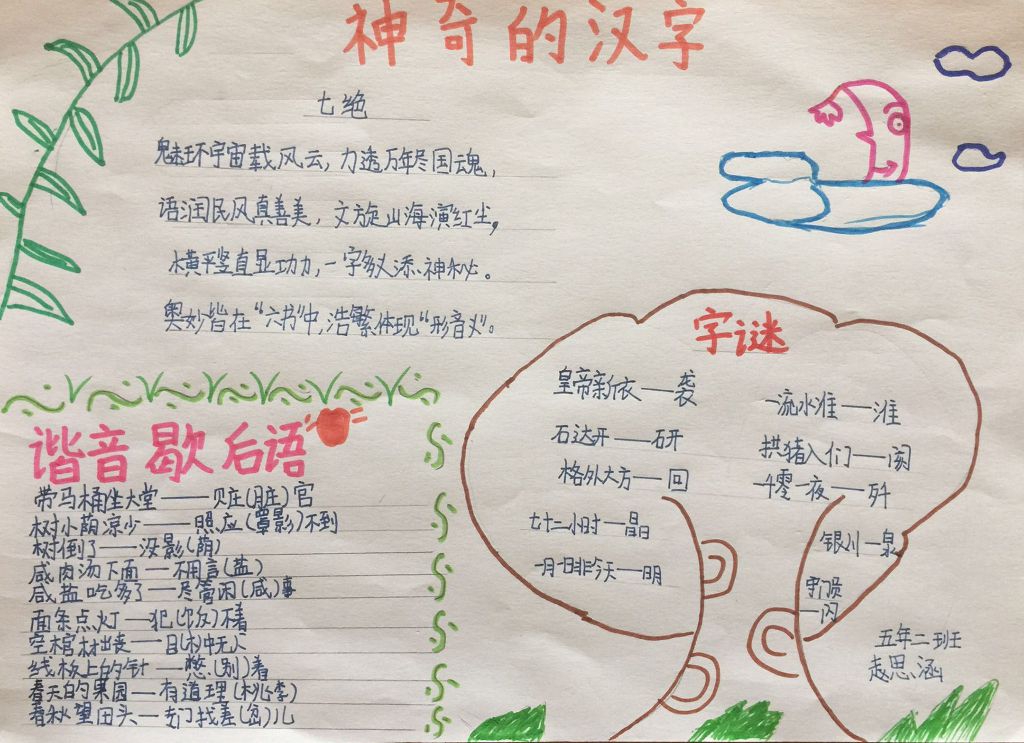 神奇的汉字
七绝
魅环宇宙载风云,力透万年尽国魂,
语润民风真善美,文旋山海演红尘,
横平竖直显功力,一字多义添神秘。
奥妙皆在“六书”中,浩繁体现“形音义”。
谐音歇后语
带马桶坐大堂——贝庄(脏)宫
树小荫凉少——照应(影)不到
树倒了——没影(荫)
咸肉汤下面——不用言(盐)
咸盐吃多了——尽管闲(咸)事
面条点灯——犯(饭)不着
空棺材出丧——目(木)中无人
线板上的针——憋(别)着
春天的果园——有道理(桃李)
春秋望田头—专门找差(岔)儿
字谜
皇帝新衣——袭
石达开——研
格外大方——回
七十二小时—晶
一月一日非今天——明
一流水准——淮
拱猪入门——阂
一千零一夜——歼
银川—泉
守门员
—闪
五年二班
赵思涵